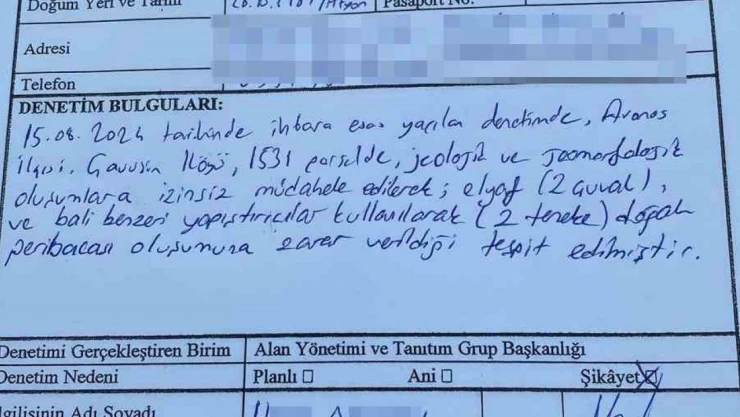 Doğum Yeri ve Tarihi Pasaport No:
Adresi
Telefon
DENETİM BULGULARI:
15.08.2024 tarihinde ihbara esas yapılan denetimde, Avanos
ilçesi, Çavuşin Köyü, 1531 parselde, jeolojik ve jeomorfolojik
oluşumlara izinsiz müdahele edilerek; elyaf (2 çuval),
ve bali benzeri yapıştırıcılar kullanılarak (2 teneke) doğal
peribacası oluşumuna zarar verildiği tespit edilmiştir.
Denetimi Gerçekleştiren Birim Alan Yönetimi ve Tanıtım Grup Başkanlığı
Denetim Nedeni Planlı ☐ Ani ☐ Şikâyet ☒
İlgilisinin Adı Soyadı